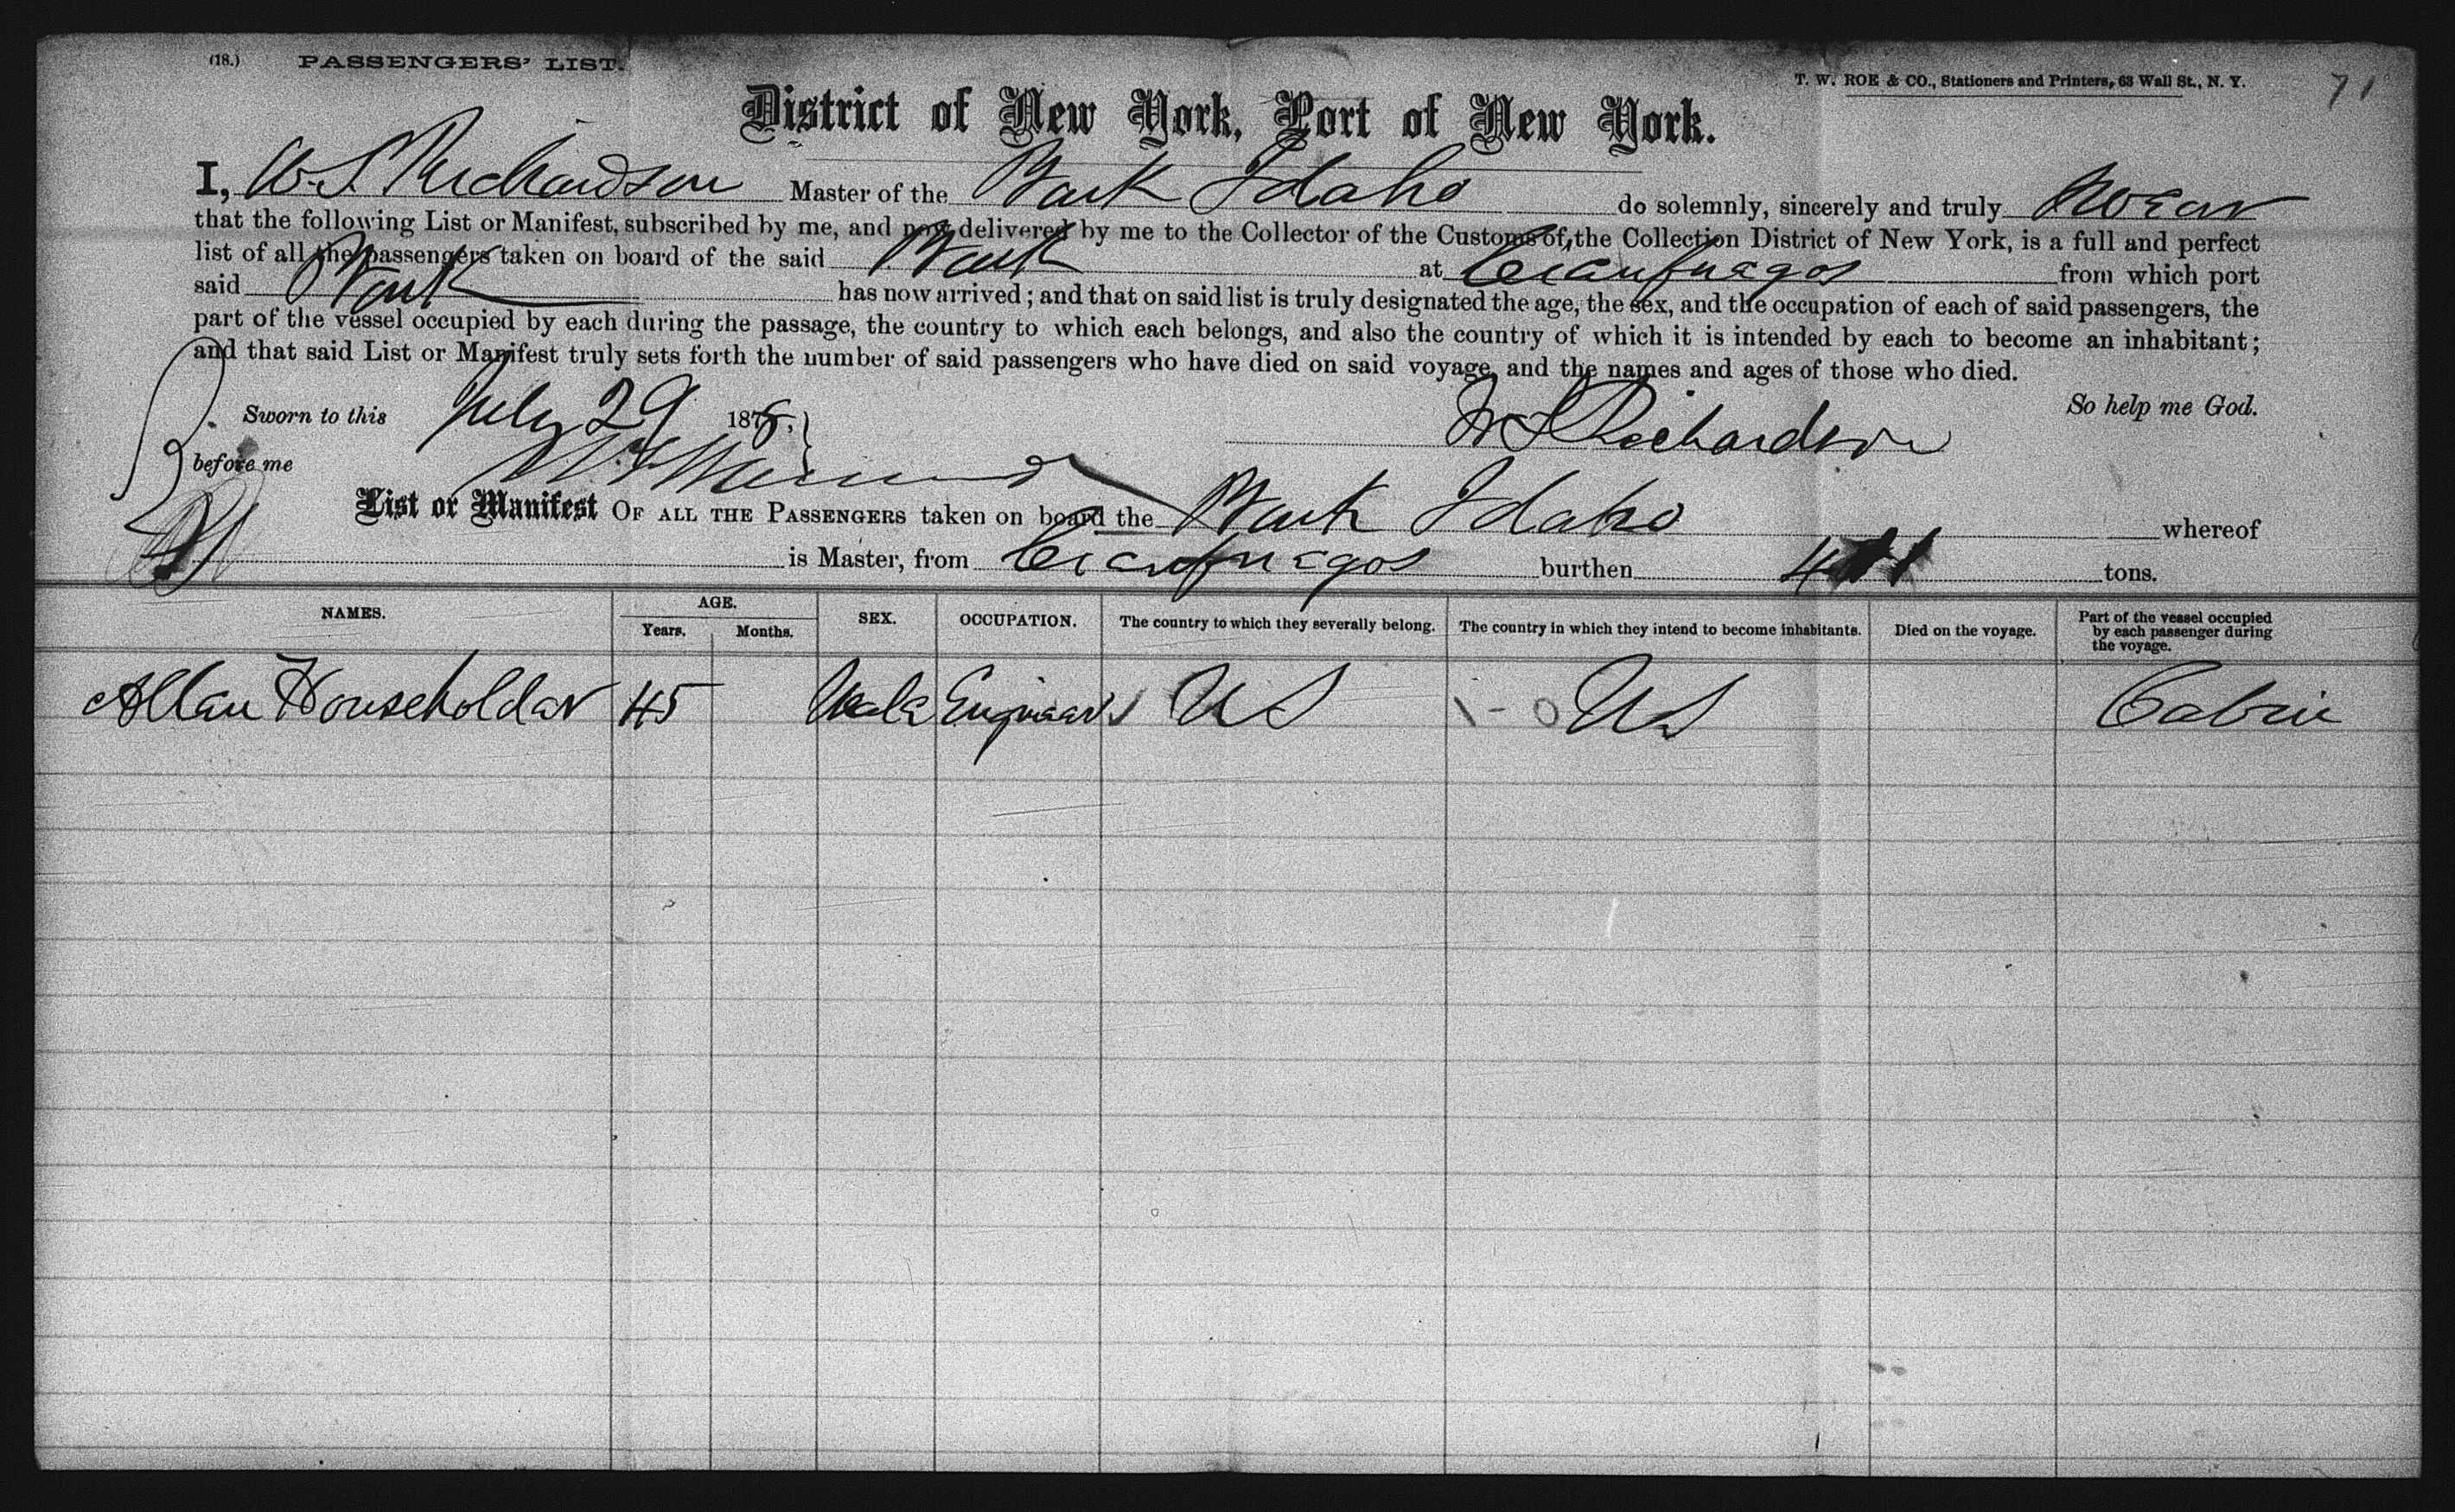 (18.) PASSENGERS' LIST.
T. W. ROE & CO., Stationers and Printers, 63 Wall St., N. Y.
71
District of New York, Port of New York.
I, W. S. Richardson Master of the Bark Idaho do solemnly, sincerely and truly swear
that the following List or Manifest, subscribed by me, and now delivered by me to the Collector of the Customs of the Collection District of New York, is a full and perfect
list of all the passengers taken on board of the said Bark at Cienfuegos from which port
said Bark has now arrived; and that on said list is truly designated the age, the sex, and the occupation of each of said passengers, the
part of the vessel occupied by each during the passage, the country to which each belongs, and also the country of which it is intended by each to become an inhabitant;
and that said List or Manifest truly sets forth the number of said passengers who have died on said voyage, and the names and ages of those who died.
So help me God.
Sworn to this July 29 1878,
W S Richardson
before me
List or Manifest OF ALL THE PASSENGERS taken on board the Bark Idaho whereof
is Master, from Cienfuegos burthen tons.
NAMES. AGE. Years. Months. SEX. OCCUPATION. The country to which they severally belong. The country in which they intend to become inhabitants. Died on the voyage. Part of the vessel occupied by each passenger during the voyage.
Allan Householder 45 Male Engineer US US Cabin